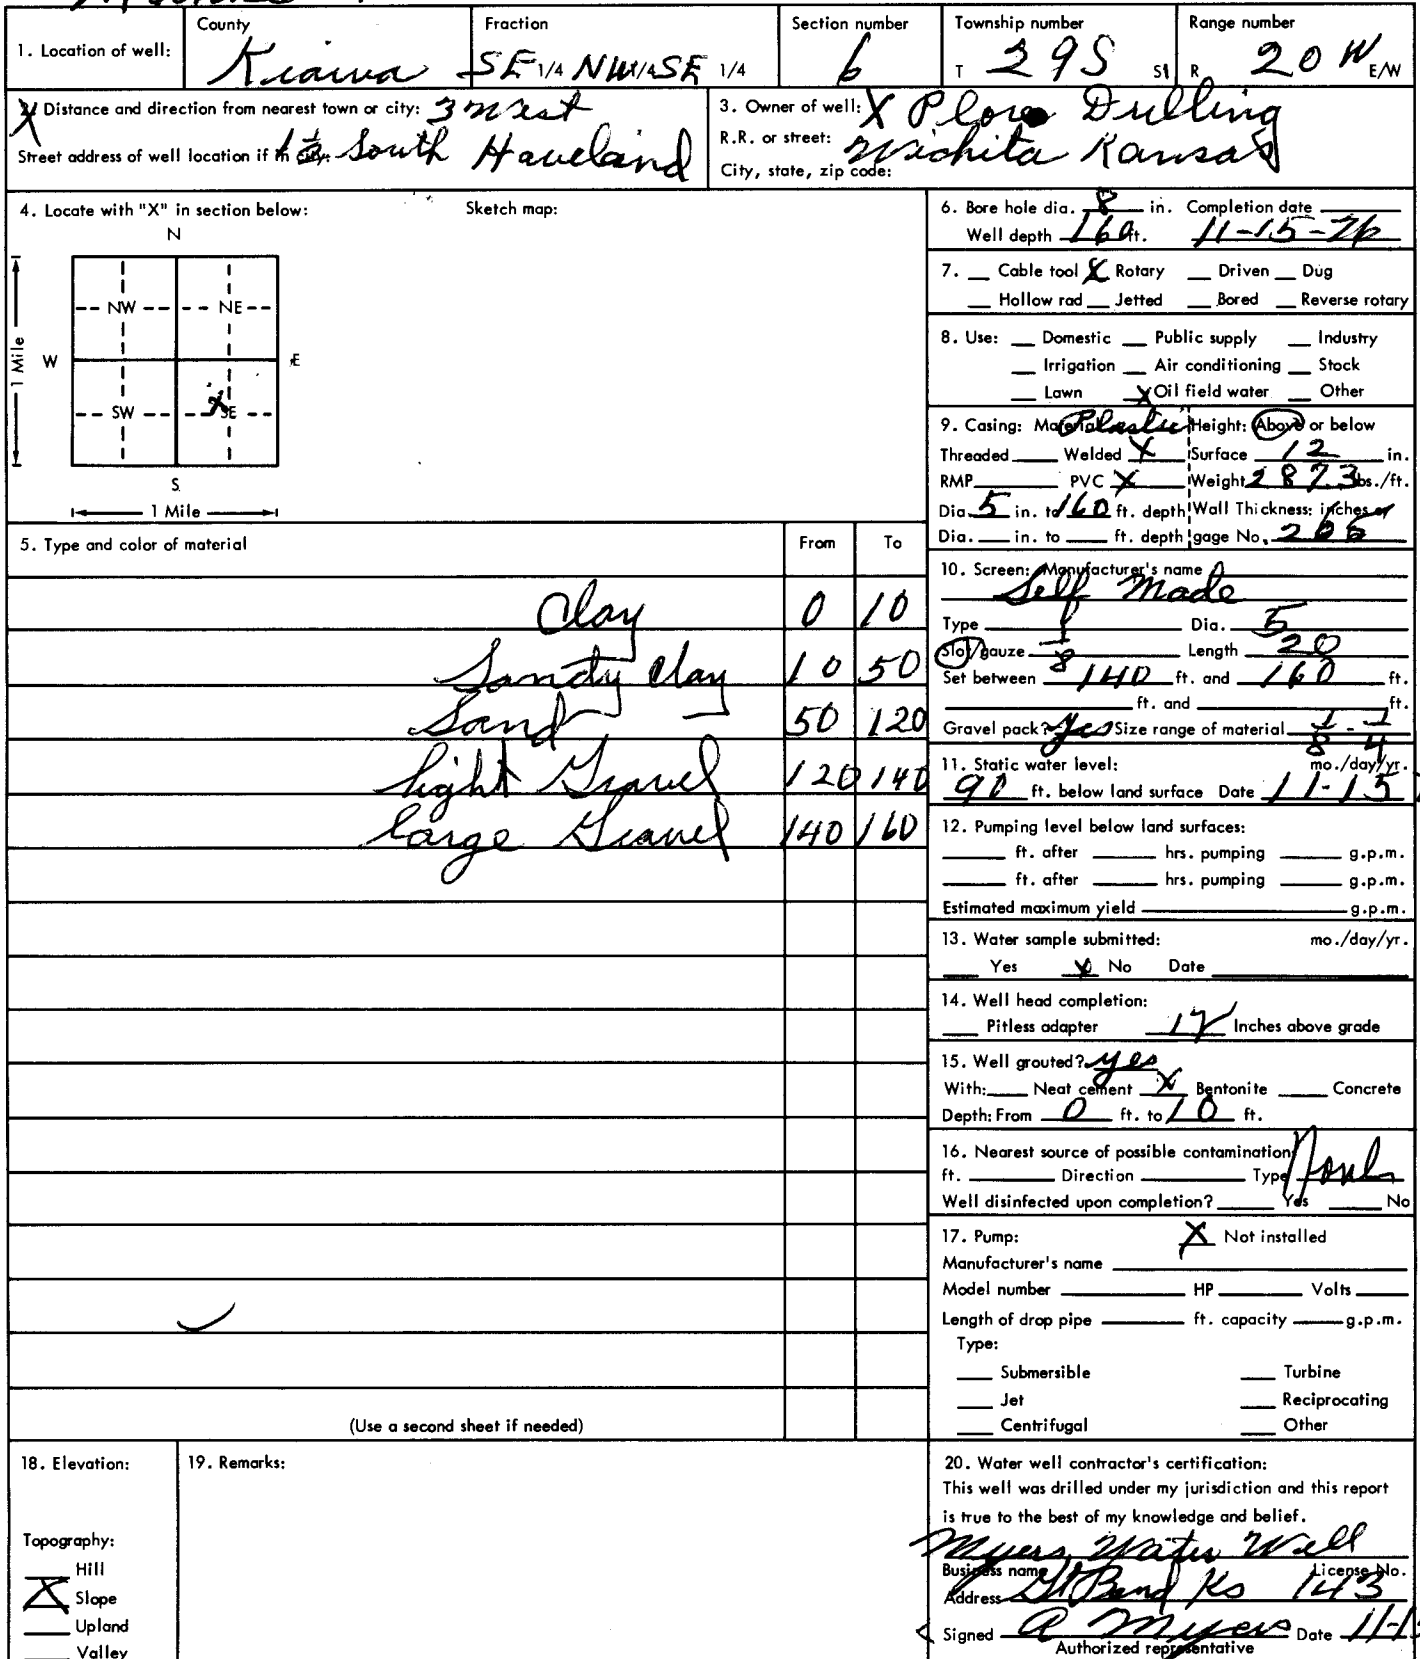 1. Location of well:
County
Kiowa
Fraction
SE 1/4 NW 1/4 SE 1/4
Section number
6
Township number
T 29S S
Range number
R 20 W E/W
Distance and direction from nearest town or city: 3 West
Street address of well location if in city: South Haveland
3. Owner of well: X Drilling
R.R. or street: Wichita Kansas
City, state, zip code:
4. Locate with "X" in section below:
Sketch map:
N
NW NE
W E
1 Mile
SW X SE
S
1 Mile
5. Type and color of material From To
Clay 0 10
Sandy Clay 10 50
Sand 50 120
light Gravel 120 140
large Gravel 140 160
(Use a second sheet if needed)
6. Bore hole dia. 8 in. Completion date
Well depth 160 ft. 11-15-76
7. Cable tool X Rotary Driven Dug
Hollow rad Jetted Bored Reverse rotary
8. Use: Domestic Public supply Industry
Irrigation Air conditioning Stock
Lawn X Oil field water Other
9. Casing: Material Plastic Height: Above or below
Threaded Welded X Surface 12 in.
RMP PVC X Weight 287.3 lbs./ft.
Dia. 5 in. to 160 ft. depth Wall Thickness: inches or
Dia. in. to ft. depth gage No.
10. Screen: Manufacturer's name
Self Made
Type Dia. 5
Slot/gauze 1/8 Length 20
Set between 140 ft. and 160 ft.
ft. and ft.
Gravel pack? Yes Size range of material 1/8 - 1/4
11. Static water level: mo./day/yr.
90 ft. below land surface Date 11-15
12. Pumping level below land surfaces:
ft. after hrs. pumping g.p.m.
ft. after hrs. pumping g.p.m.
Estimated maximum yield g.p.m.
13. Water sample submitted: mo./day/yr.
Yes X No Date
14. Well head completion:
Pitless adapter 12 Inches above grade
15. Well grouted? yes
With: Neat cement X Bentonite Concrete
Depth: From 0 ft. to 10 ft.
16. Nearest source of possible contamination:
ft. Direction Type
Well disinfected upon completion? Yes No
17. Pump: X Not installed
Manufacturer's name
Model number HP Volts
Length of drop pipe ft. capacity g.p.m.
Type:
Submersible Turbine
Jet Reciprocating
Centrifugal Other
18. Elevation:
Topography:
Hill
X Slope
Upland
Valley
19. Remarks:
20. Water well contractor's certification:
This well was drilled under my jurisdiction and this report
is true to the best of my knowledge and belief.
Myers Water Well
Business name License No.
Address Gt Bend Ks 143
Signed A Myers Date 11-1
Authorized representative